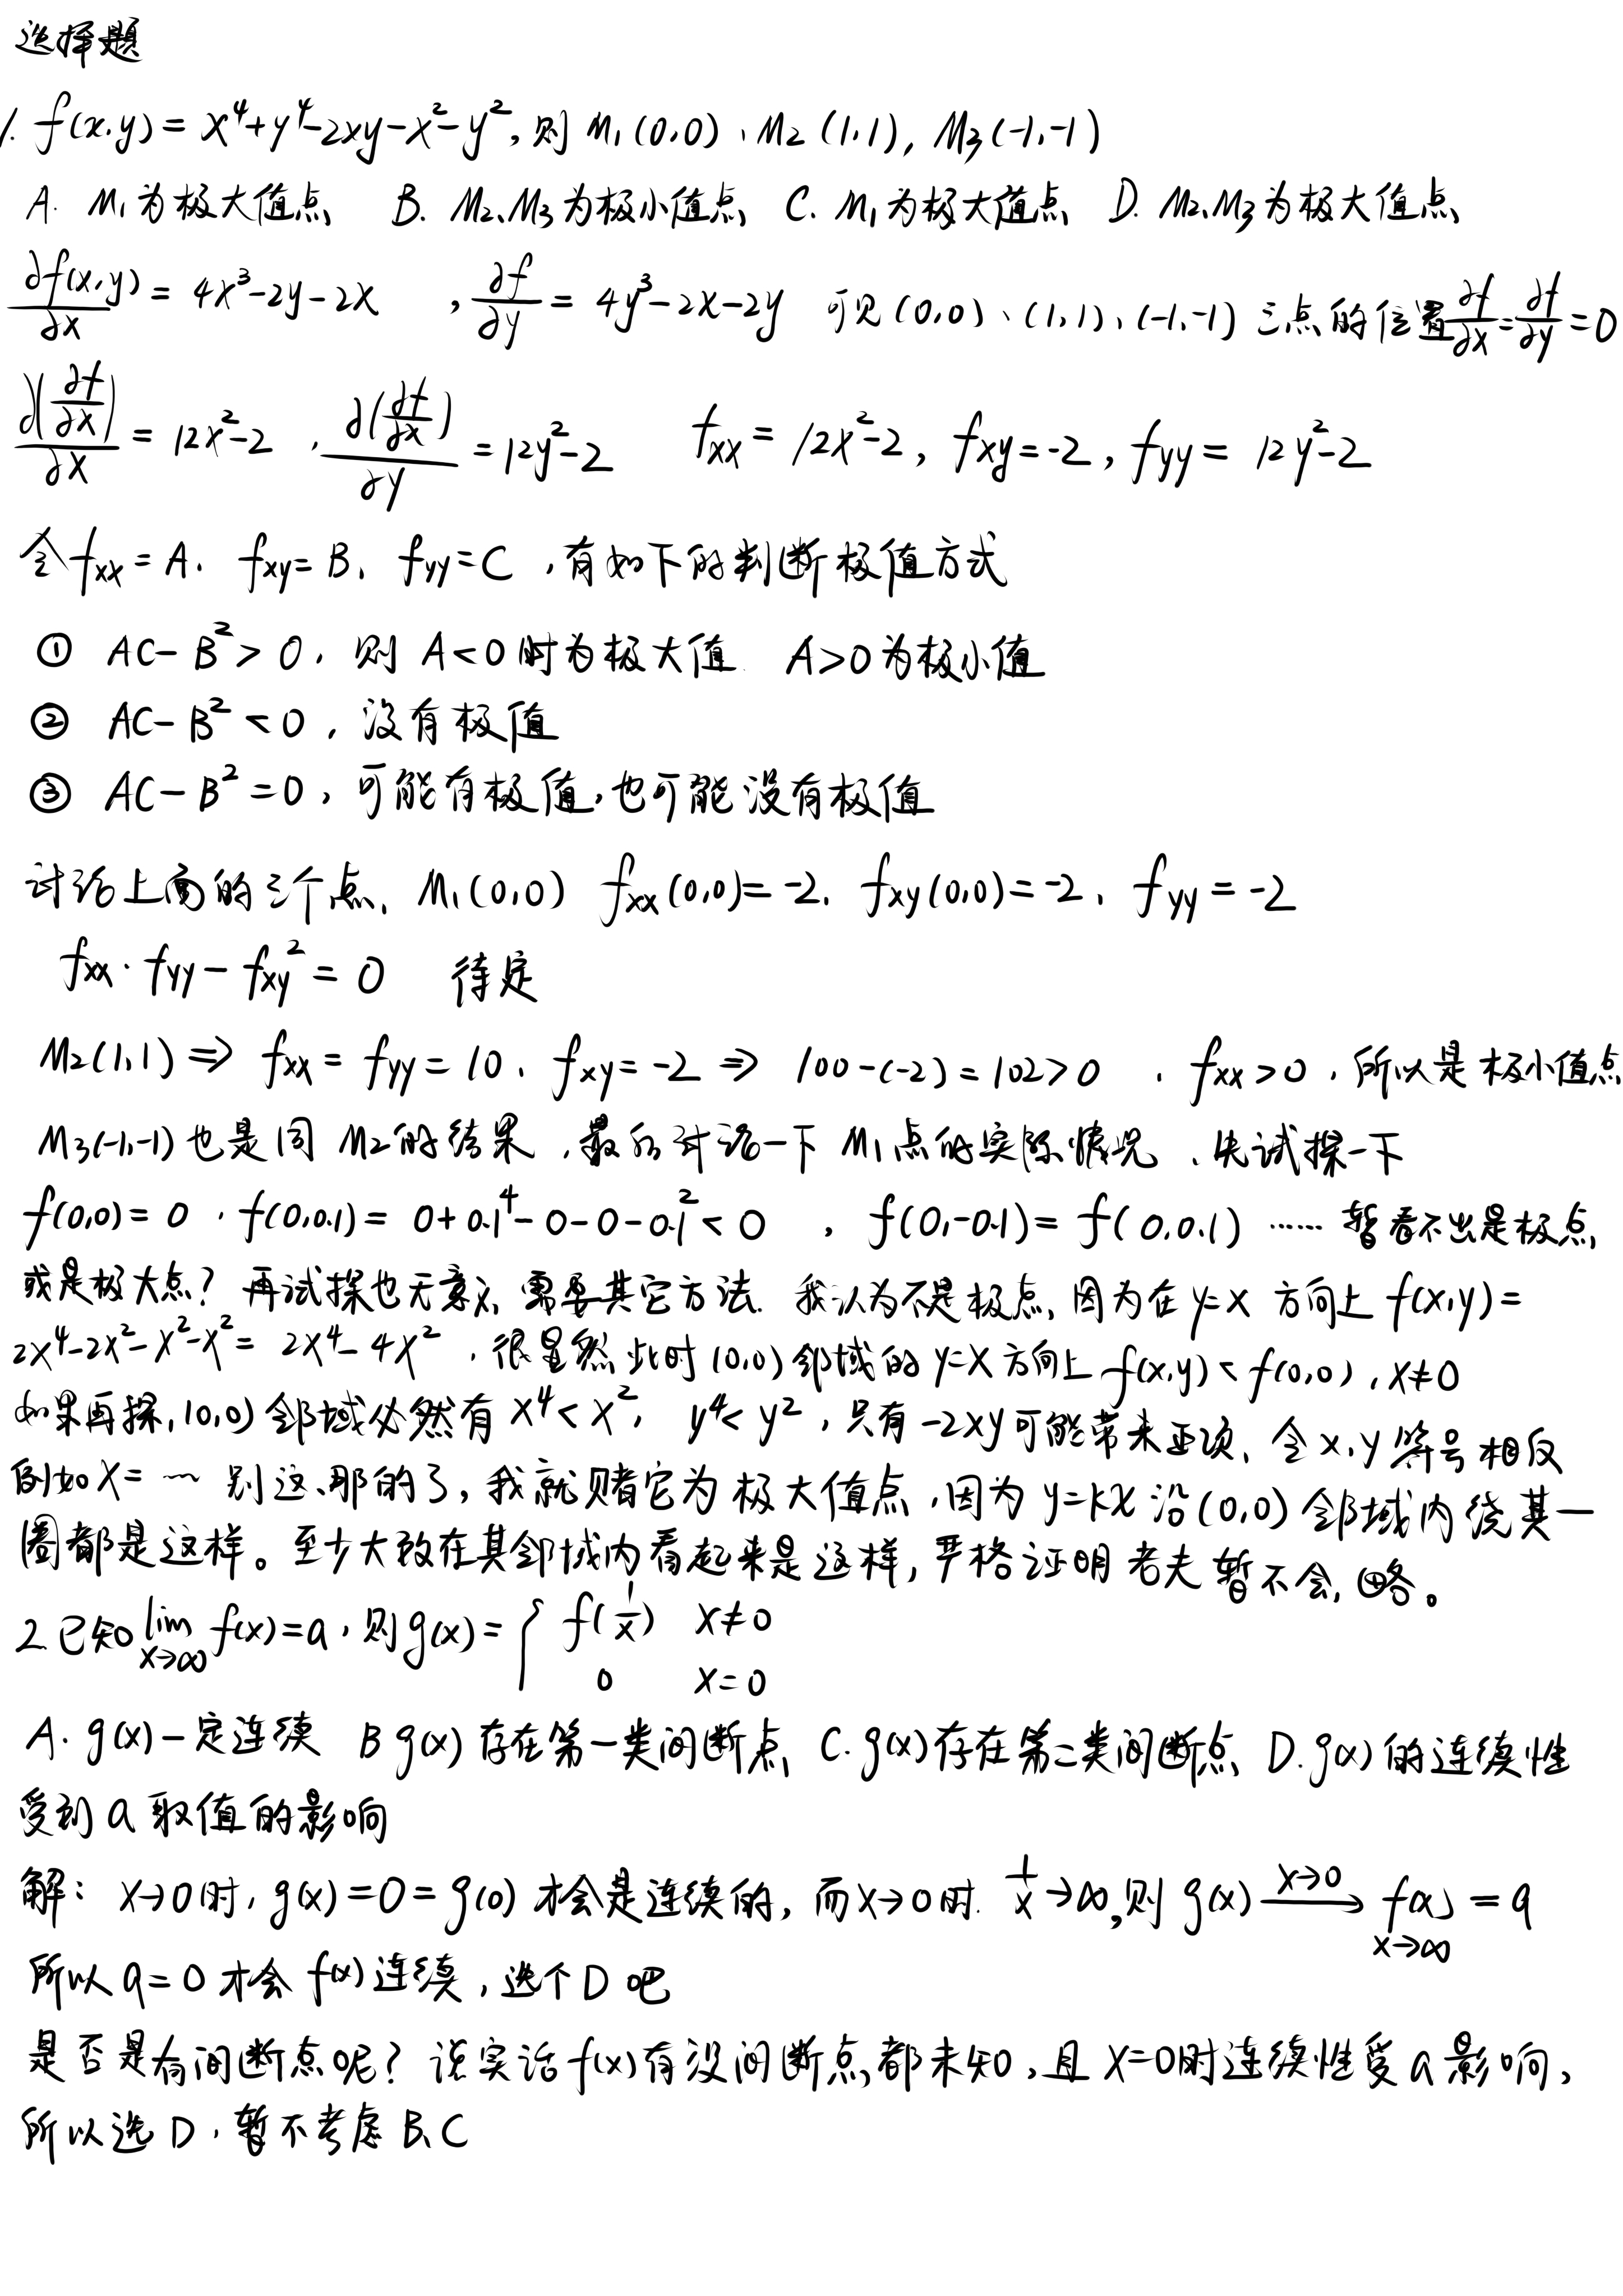 选择题
1. f(x,y) = x⁴+y⁴-2xy-x²-y², 则 M₁(0,0)、M₂(1,1), M₃(-1,-1)
A. M₁为极大值点 B. M₂、M₃为极小值点 C. M₁为极大值点 D. M₂、M₃为极大值点
∂f(x,y)/∂x = 4x³-2y-2x , ∂f/∂y = 4y³-2x-2y 可见(0,0)、(1,1)、(-1,-1)三点的位置 ∂f/∂x = ∂f/∂y = 0
∂(∂f/∂x)/∂x = 12x²-2 , ∂(∂f/∂x)/∂y = 12y²-2 fxx = 12x²-2, fxy = -2, fyy = 12y²-2
令 fxx = A、fxy = B、fyy = C ,有如下的判断极值方式
① AC-B² > 0, 则 A<0时为极大值 A>0为极小值
② AC-B² < 0, 没有极值
③ AC-B² = 0, 可能有极值,也可能没有极值
讨论上面的三个点、M₁(0,0) fxx(0,0) = -2、fxy(0,0) = -2、fyy = -2
fxx·fyy - fxy² = 0 待定
M₂(1,1) ⇒ fxx = fyy = 10、fxy = -2 ⇒ 100-(-2) = 102 > 0 、fxx>0,所以是极小值点
M₃(-1,-1)也是同M₂的结果,最后讨论一下M₁点的实际情况、先试探一下
f(0,0) = 0 , f(0,0.1) = 0+0.1⁴-0-0-0.1² < 0 , f(0,-0.1) = f(0,0.1) …… 暂看不出是极点
或是极大点? 再试探也无意义,需要其它方法. 我认为不是极点,因为在y=x方向上 f(x,y) =
2x⁴-2x²-x²-x² = 2x⁴-4x² ,很显然此时(0,0)邻域的y=x方向上 f(x,y) < f(0,0), x≠0
如果再探,(0,0)邻域必然有x⁴<x², y⁴<y²,只有-2xy可能带来正项、令x,y符号相反
例如x= ~ 别这、那的了,我就赌它为极大值点,因为y=kx沿(0,0)邻域内绕其一
圈都是这样。至少大致在其邻域内看起来是这样,严格证明老夫暂不会,略。
2. 已知 lim x→∞ f(x) = a, 则 g(x) = { f(1/x) x≠0
0 x=0
A. g(x)一定连续 B g(x)存在第一类间断点 C. g(x)存在第二类间断点 D. g(x)的连续性
受到a取值的影响
解: x→0时, g(x)=0=g(0)才会是连续的, 而x→0时. 1/x→∞,则 g(x) x→0⟶ f(x) x→∞ = a
所以a=0才会f(x)连续,选个D吧
是否是有间断点呢? 说实话f(x)有没间断点都未知,且x=0时连续性受a影响,
所以选D,暂不考虑B、C